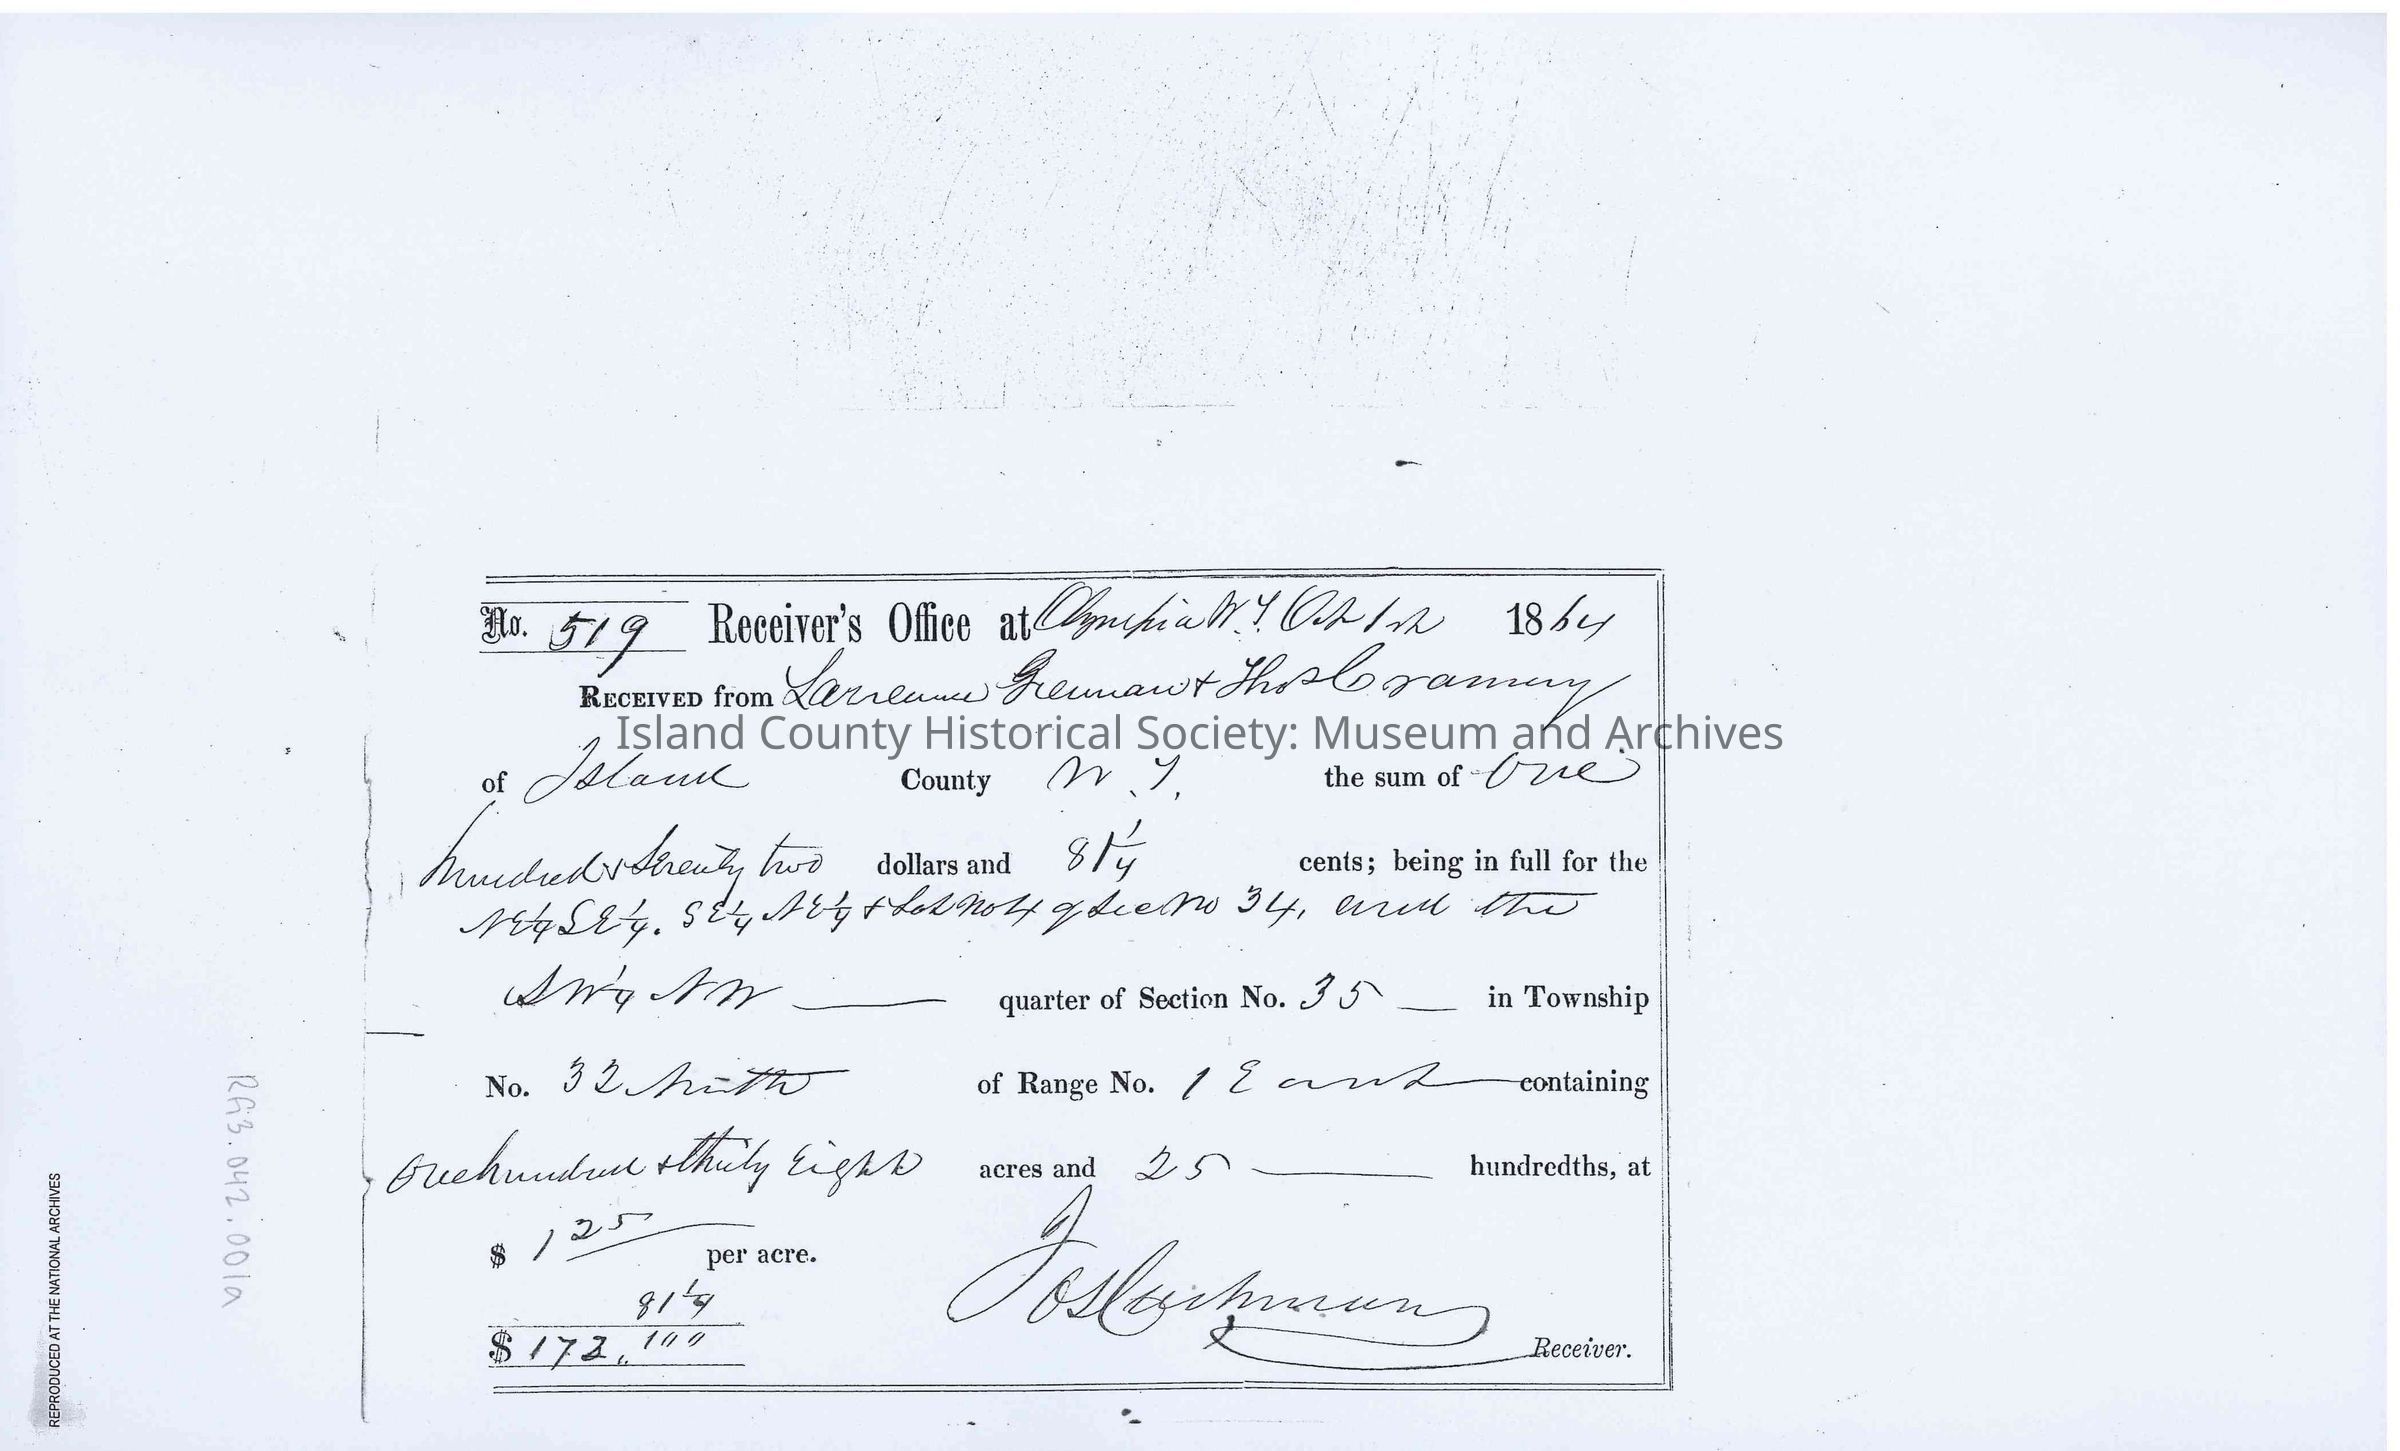 No. 519 Receiver's Office at Olympia W.T. Oct 1st 1864
RECEIVED from Lawrence Grennan & Thos Cranney
Island County Historical Society: Museum and Archives
of Island County W.T. the sum of One
hundred & Seventy two dollars and 81 1/4 cents; being in full for the
NE 1/4 SE 1/4. SE 1/4 NE 1/4 & Lot No 4 of Sec No 34, and the
SW 1/4 NW — quarter of Section No. 35 — in Township
No. 32 North of Range No. 1 East containing
One hundred & thirty Eight acres and 25 — hundredths, at
$ 1 25 per acre.
81 1/4
$ 172. 100
Jos Cushman
Receiver.
RG3.042.001a
REPRODUCED AT THE NATIONAL ARCHIVES